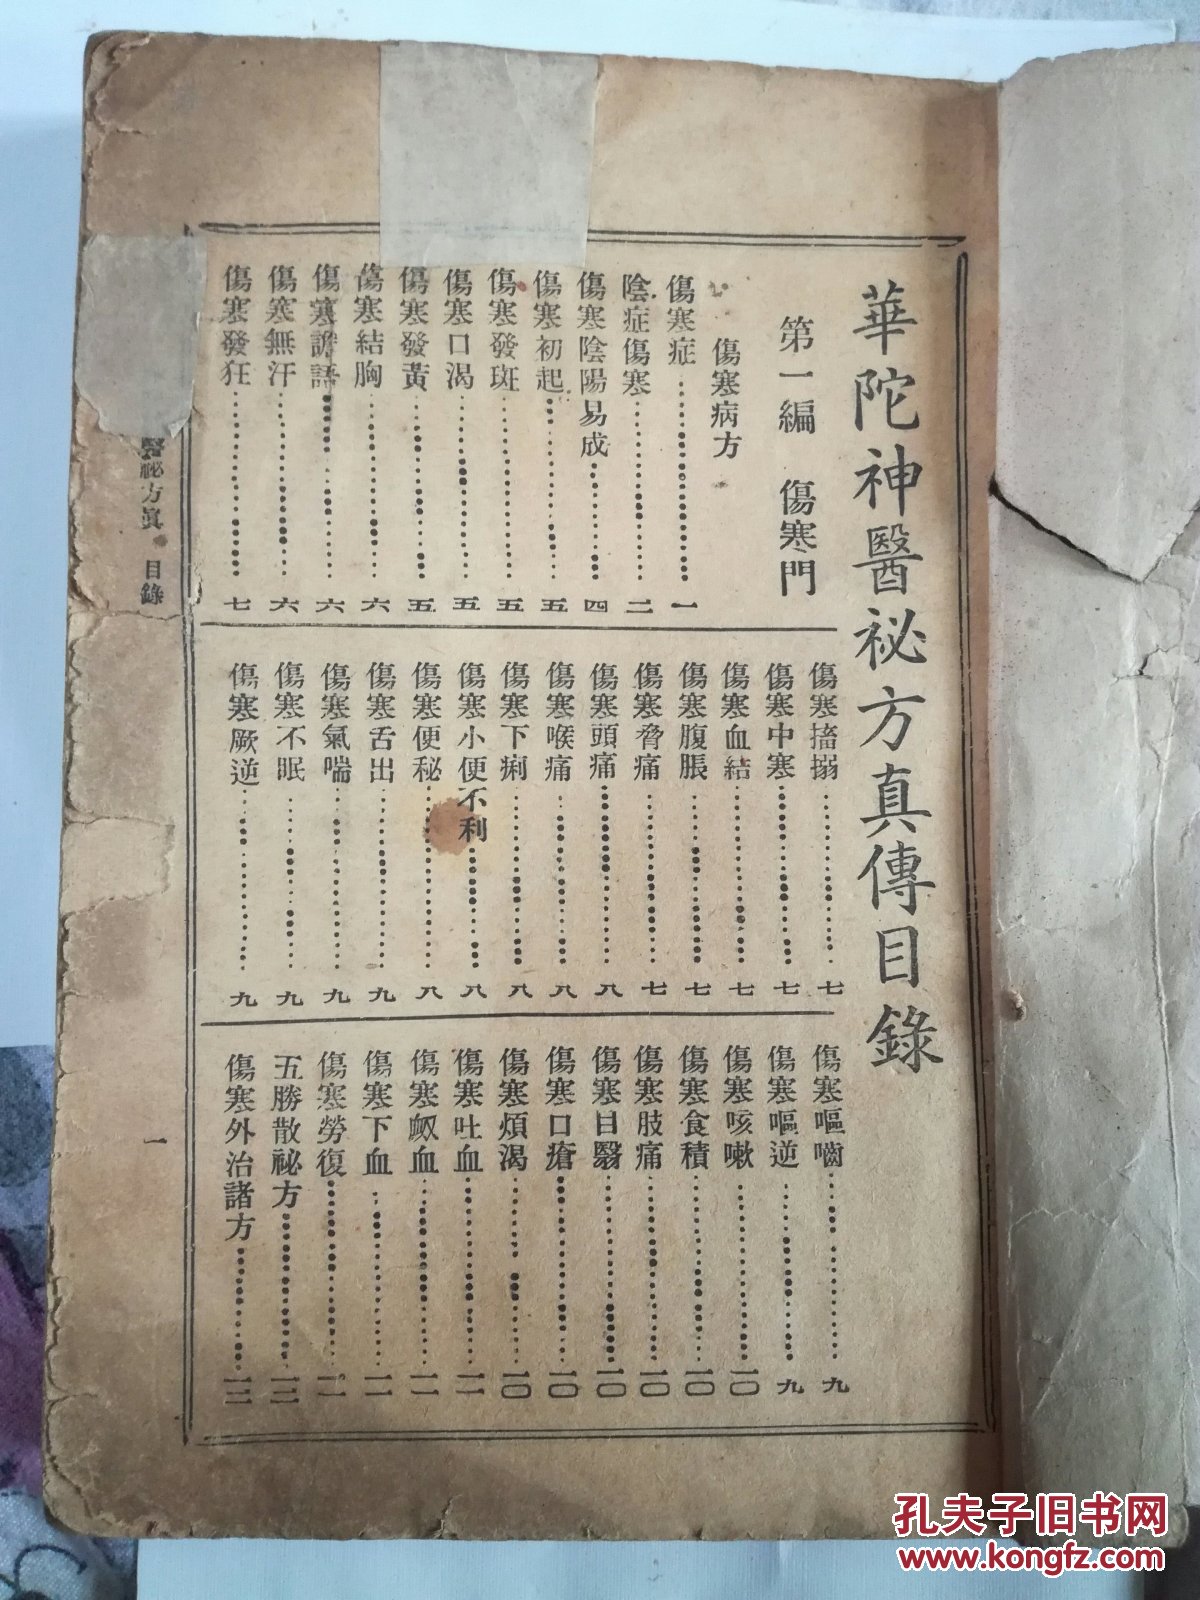 華陀神醫祕方真傳目錄
第一編　傷寒門
傷寒病方
傷寒症………一
陰症傷寒………二
傷寒陰陽易成………四
傷寒初起………五
傷寒發斑………五
傷寒口渴………五
傷寒發黃………五
傷寒結胸………六
傷寒譫語………六
傷寒無汗………六
傷寒發狂………七
傷寒搐搦………七
傷寒中寒………七
傷寒血結………七
傷寒腹脹………七
傷寒脅痛………七
傷寒頭痛………八
傷寒喉痛………八
傷寒下痢………八
傷寒小便不利………八
傷寒便秘………八
傷寒舌出………九
傷寒氣喘………九
傷寒不眠………九
傷寒厥逆………九
傷寒嘔嚙………九
傷寒嘔逆………九
傷寒咳嗽………一〇
傷寒食積………一〇
傷寒肢痛………一〇
傷寒目翳………一〇
傷寒口瘡………一〇
傷寒煩渴………一〇
傷寒吐血………一一
傷寒衂血………一一
傷寒下血………一一
傷寒勞復………一一
五勝散祕方………一二
傷寒外治諸方………一二
醫祕方眞　目錄
一
孔夫子旧书网
www.kongfz.com